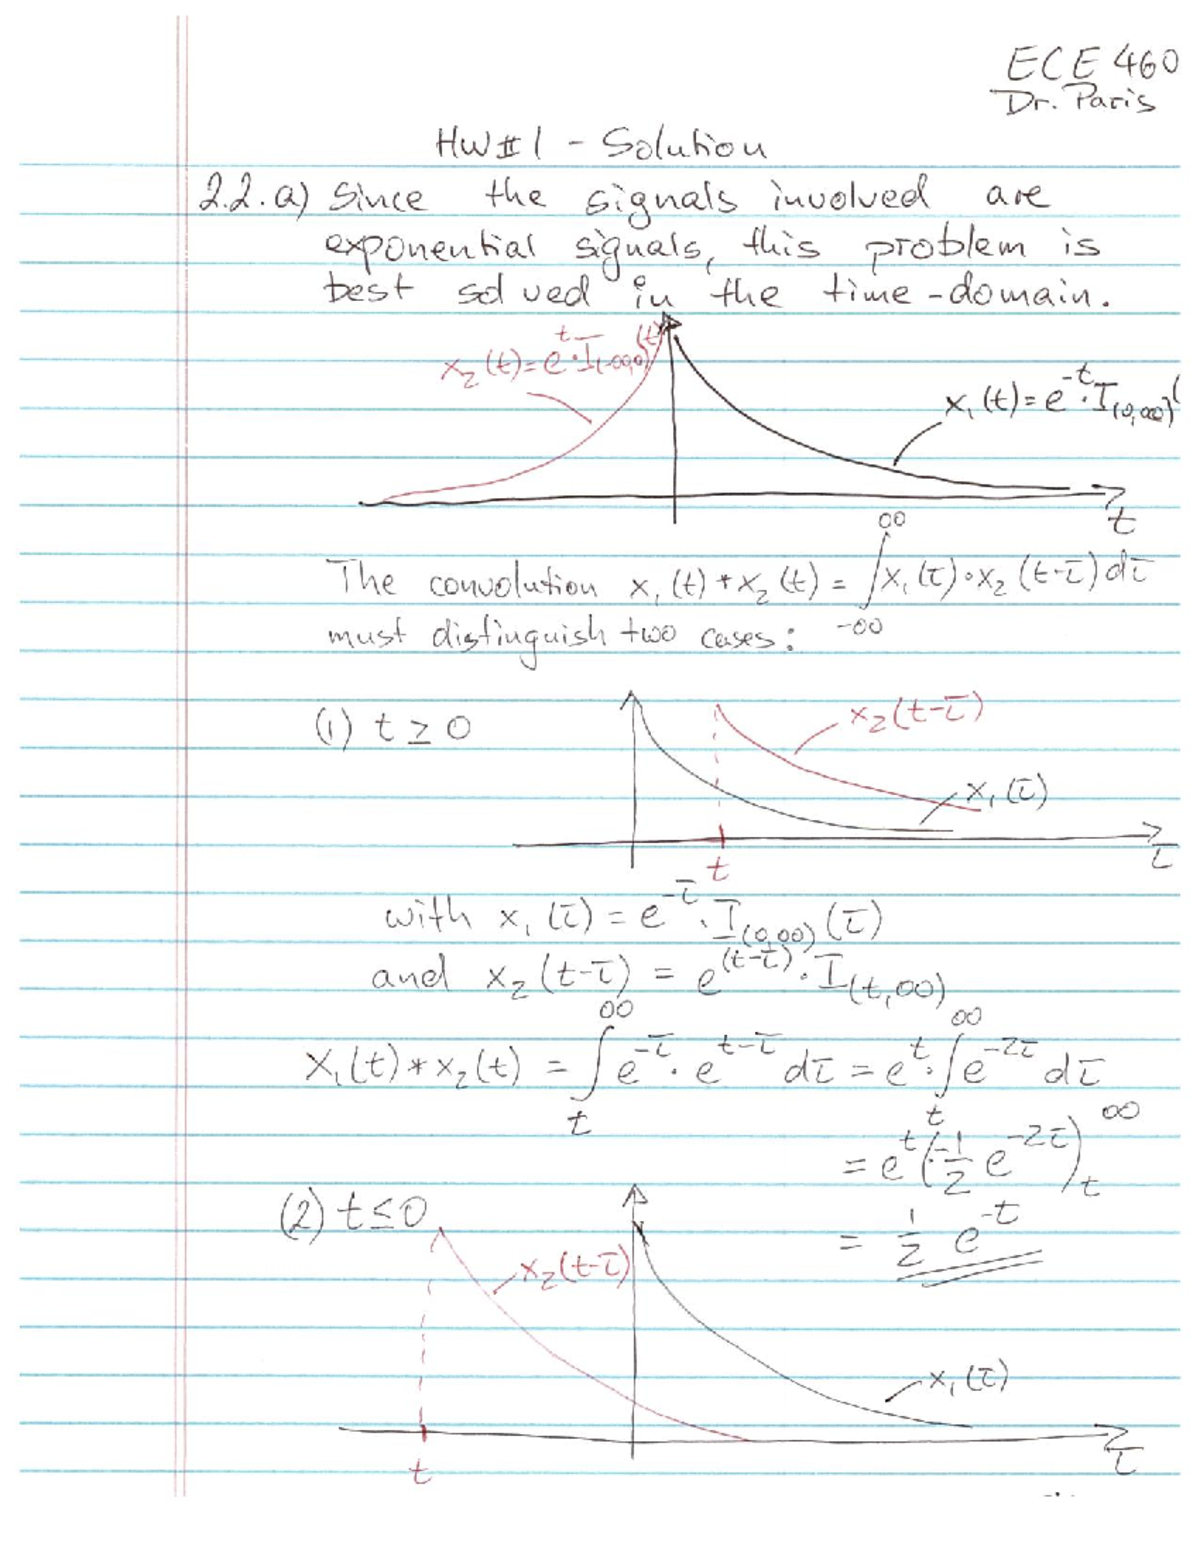 ECE 460
Dr. Paris
HW#1 - Solution
2.2. a) Since the signals involved are
exponential signals, this problem is
best solved in the time-domain.
x₂(t) = e^t · I_(-∞,0)(t)
x₁(t) = e^-t · I_(0,∞)(
t
The convolution x₁(t) * x₂(t) = ∫_-∞^∞ x₁(τ) · x₂(t-τ) dτ
must distinguish two cases:
(1) t ≥ 0
x₂(t-τ)
x₁(τ)
t
τ
with x₁(τ) = e^-τ · I_(0,∞)(τ)
and x₂(t-τ) = e^(t-τ) · I_(t,∞)
x₁(t) * x₂(t) = ∫_t^∞ e^-τ · e^t-τ dτ = e^t · ∫_t^∞ e^-2τ dτ
= e^t (-1/2 e^-2τ)_t^∞
= 1/2 e^-t
(2) t ≤ 0
x₂(t-τ)
x₁(τ)
t
τ